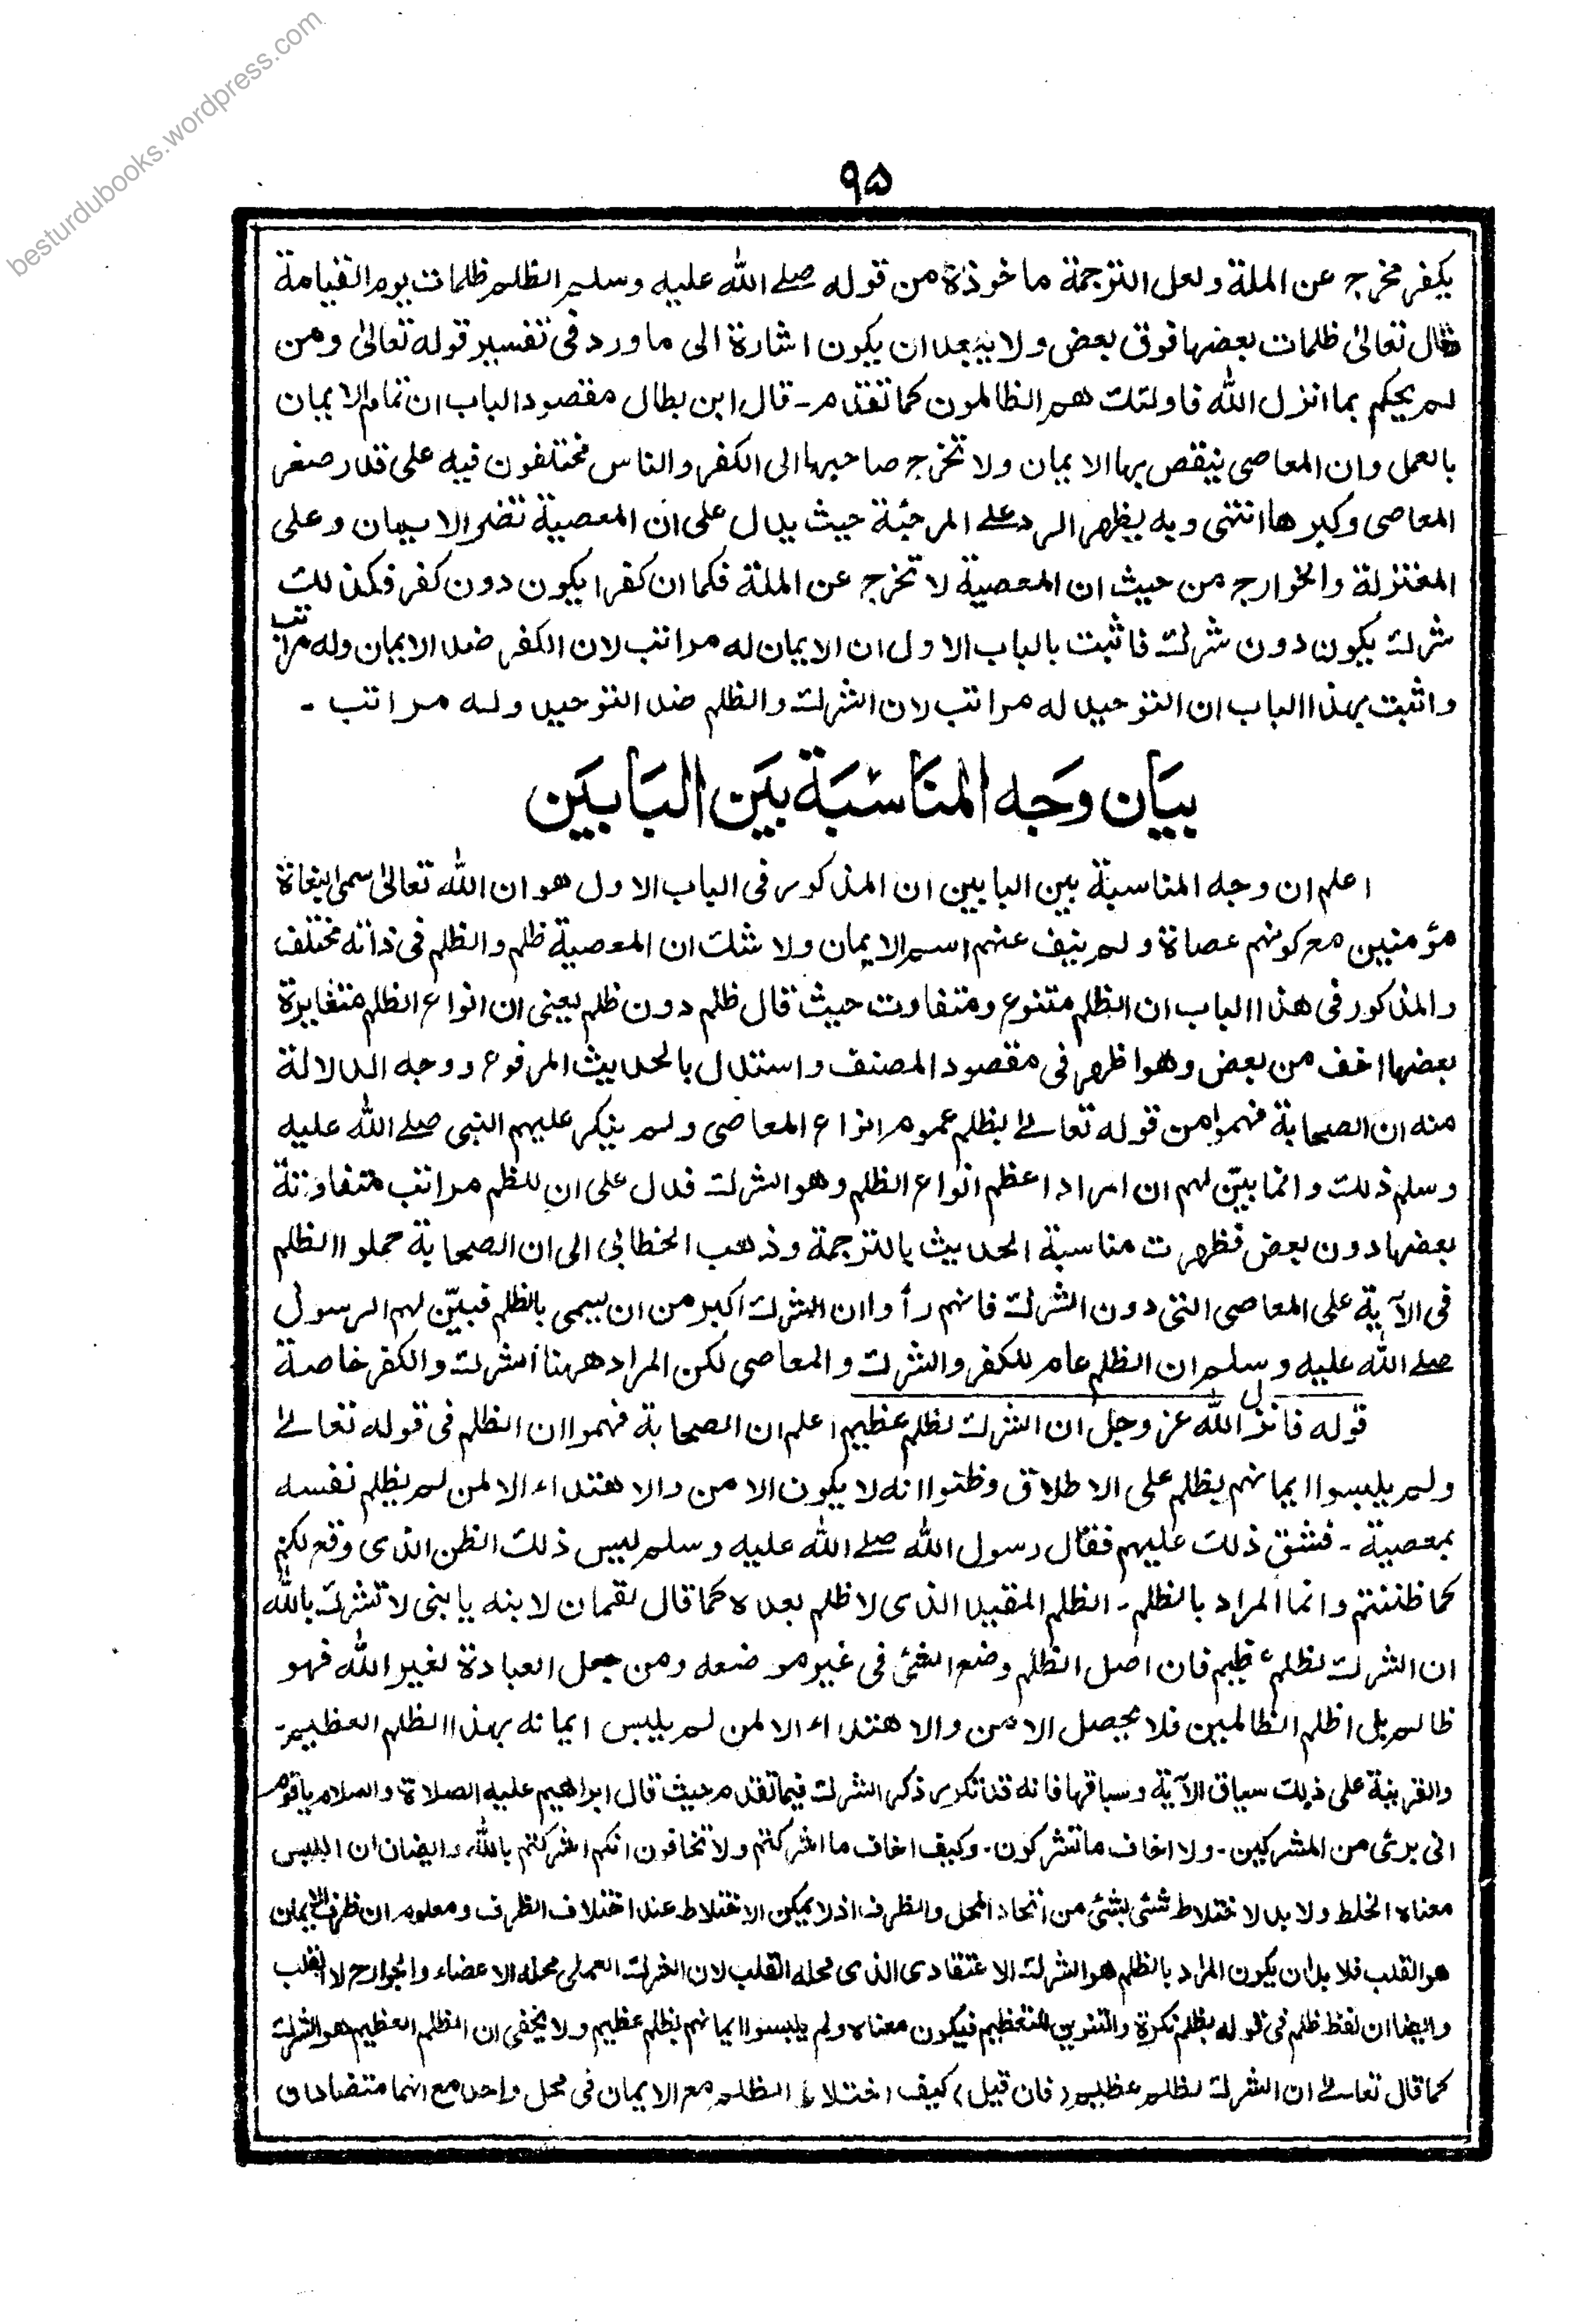 besturdubooks.wordpress.com
٩۵
يكفر مخرج عن الملة ولعل الترجمة ماخوذة من قوله صلے الله عليه وسلم الظلم ظلمات يوم القيامة
قال تعالىٰ ظلمات بعضها فوق بعض ولا يبعد ان يكون اشارة الى ما ورد فى تفسير قوله تعالىٰ ومن
لم يحكم بما انزل الله فاولئك هم الظالمون كما تقدم - قال ابن بطال مقصود الباب ان تمام الايمان
بالعمل وان المعاصى ينقص بها الايمان ولا تخرج صاحبها الى الكفر والناس مختلفون فيه على قدر صغر
المعاصى وكبرها انتهى وبه يظهر الرد علے المرجئة حيث يدل على ان المعصية تضر الايمان وعلى
المعتزلة والخوارج من حيث ان المعصية لا تخرج عن الملة فكما ان كفرا يكون دون كفر فكذلك
شرك يكون دون شرك فاثبت بالباب الاول ان الايمان له مراتب لان الكفر ضد الايمان وله مراتب
واثبت بهذا الباب ان التوحيد له مراتب لان الشرك والظلم ضد التوحيد وله مراتب -
بيَان وَجه المنَاسَبَة بَين البَابَين
اعلم ان وجه المناسبة بين البابين ان المذكور فى الباب الاول هو ان الله تعالىٰ سمى البغاة
مؤمنين مع كونهم عصاة ولم ينف عنهم اسم الايمان ولا شك ان المعصية ظلم والظلم فى ذاته مختلف
والمذكور فى هذا الباب ان الظلم متنوع ومتفاوت حيث قال ظلم دون ظلم يعنى ان انواع الظلم متغايرة
بعضها اخف من بعض وهو اظهر فى مقصود المصنف واستدل بالحديث المرفوع ووجه الدلالة
منه ان الصحابة فهموا من قوله تعالےٰ بظلم عموم انواع المعاصى ولم ينكر عليهم النبى صلے الله عليه
وسلم ذلك وانما بيّن لهم ان المراد اعظم انواع الظلم وهو الشرك فدل على ان للظلم مراتب متفاوتة
بعضها دون بعض فظهرت مناسبة الحديث بالترجمة وذهب الخطابى الى ان الصحابة حملوا الظلم
فى الآية على المعاصى التى دون الشرك فانهم رأوا ان الشرك اكبر من ان يسمى بالظلم فبيّن لهم الرسول
صلے الله عليه وسلم ان الظلم عام للكفر والشرك والمعاصى لكن المراد ههنا الشرك والكفر خاصة
قوله فانزل الله عز وجل ان الشرك لظلم عظيم اعلم ان الصحابة فهموا ان الظلم فى قوله تعالےٰ
ولم يلبسوا ايمانهم بظلم على الاطلاق وظنوا انه لا يكون الامن والاهتداء الا لمن لم يظلم نفسه
بمعصية - فشق ذلك عليهم فقال رسول الله صلے الله عليه وسلم ليس ذلك الظن الذى وقع لكم
كما ظننتم وانما المراد بالظلم - الظلم المقيد الذى لا ظلم بعده كما قال لقمان لابنه يا بنى لا تشرك بالله
ان الشرك لظلم عظيم فان اصل الظلم وضع الشئ فى غير موضعه ومن جعل العبادة لغير الله فهو
ظالم بل اظلم الظالمين فلا يحصل الامن والاهتداء الا لمن لم يلبس ايمانه بهذا الظلم العظيم -
والقرينة على ذلك سياق الآية وسباقها فانه قد تكرر ذكر الشرك فيما تقدم حيث قال ابراهيم عليه الصلاة والسلام يا قوم
انى برئ من المشركين - ولا اخاف ما تشركون - وكيف اخاف ما اشركتم ولا تخافون انكم اشركتم بالله وايضا ان اللبس
معناه الخلط ولا بد لاختلاط شئ بشئ من اتحاد المحل والظرف اذ لا يمكن الاختلاط عند اختلاف الظرف ومعلوم ان ظرف الايمان
هو القلب فلا بد ان يكون المراد بالظلم هو الشرك الاعتقادى الذى محله القلب لان الشرك العملى محله الاعضاء والجوارح لا القلب
وايضا ان لفظ ظلم فى قوله بظلم نكرة والتنوين للتعظيم فيكون معناه ولم يلبسوا ايمانهم بظلم عظيم ولا يخفى ان الظلم العظيم هو الشرك
كما قال تعالےٰ ان الشرك لظلم عظيم (فان قيل) كيف اختلاط الظلم مع الايمان فى محل واحد مع انهما متضادان